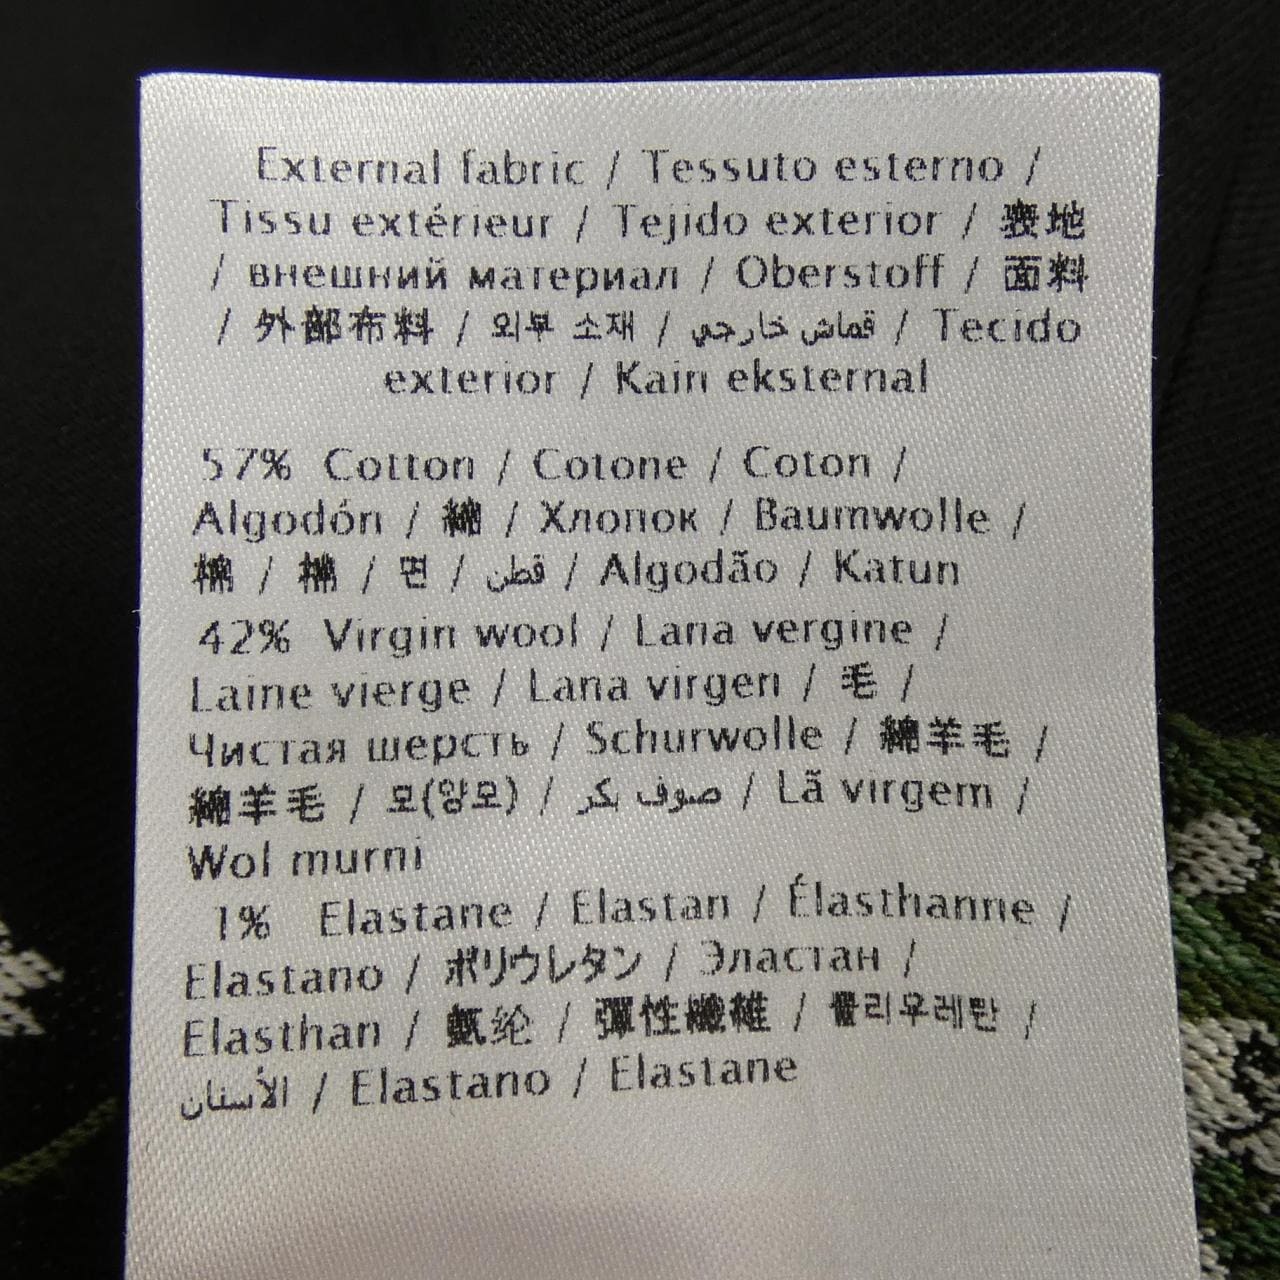 External fabric / Tessuto esterno /
Tissu extérieur / Tejido exterior / 表地
/ внешний материал / Oberstoff / 面料
/ 外部布料 / 외부 소재 / قماش خارجي / Tecido
exterior / Kain eksternal
57% Cotton / Cotone / Coton /
Algodón / 綿 / Хлопок / Baumwolle /
棉 / 棉 / 면 / قطن / Algodão / Katun
42% Virgin wool / Lana vergine /
Laine vierge / Lana virgen / 毛 /
Чистая шерсть / Schurwolle / 綿羊毛 /
綿羊毛 / 모(양모) / صوف بكر / Lã virgem /
Wol murni
1% Elastane / Elastan / Élasthanne /
Elastano / ポリウレタン / Эластан /
Elasthan / 氨纶 / 彈性纖維 / 폴리우레탄 /
الأستان / Elastano / Elastane